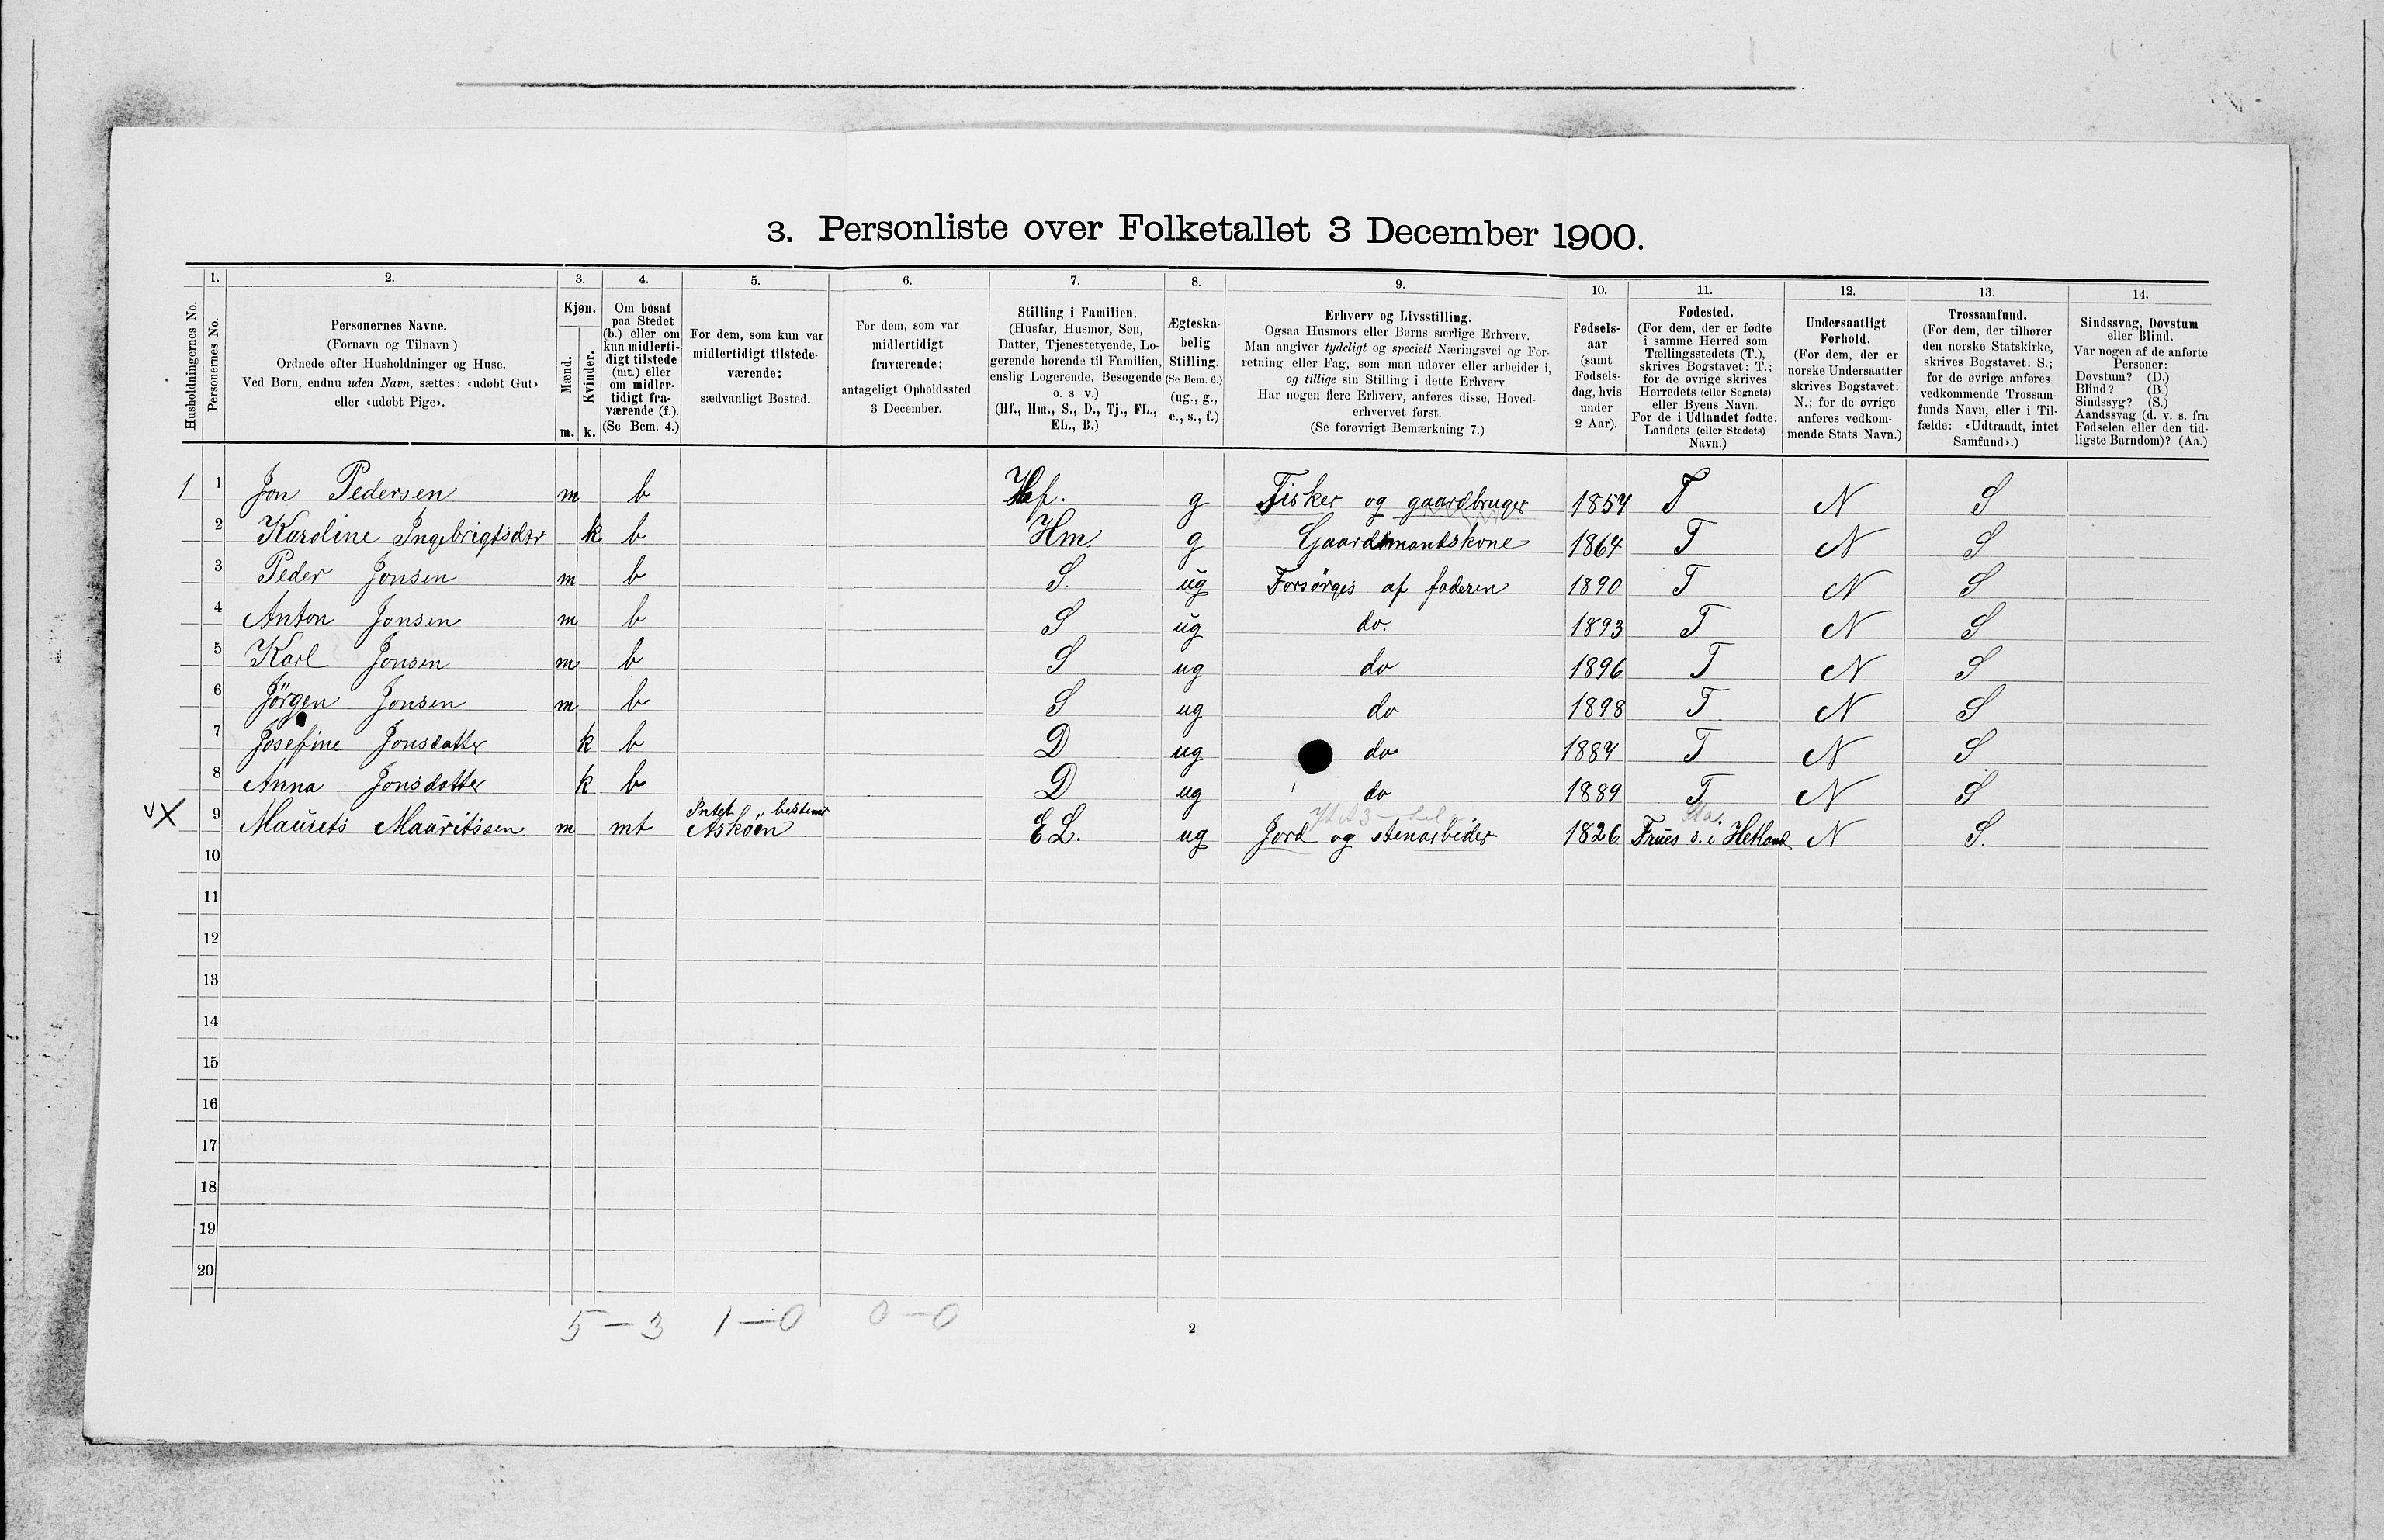 3. Personliste over Folketallet 3 December 1900.
1. 2. 3. 4. 5. 6. 7. 8. 9. 10. 11. 12. 13. 14.
Husholdningernes No.
Personernes No.
Personernes Navne.
(Fornavn og Tilnavn )
Ordnede efter Husholdninger og Huse.
Ved Børn, endnu uden Navn, sættes: «udøbt Gut»
eller «udøbt Pige».
Kjøn.
Mænd.
Kvinder.
m. k.
Om bosat
paa Stedet
(b.) eller om
kun midlerti-
digt tilstede
(mt.) eller
om midler-
tidigt fra-
værende (f.).
(Se Bem. 4.)
For dem, som kun var
midlertidigt tilstede-
værende:
sædvanligt Bosted.
For dem, som var
midlertidigt
fraværende:
antageligt Opholdssted
3 December.
Stilling i Familien.
(Husfar, Husmor, Søn,
Datter, Tjenestetyende, Lo-
gerende hørende til Familien,
enslig Logerende, Besøgende
o. s. v.)
(Hf., Hm., S., D., Tj., FL.,
EL., B.)
Ægteska-
belig
Stilling.
(Se Bem. 6.)
(ug., g.,
e., s., f.)
Erhverv og Livsstilling.
Ogsaa Husmors eller Børns særlige Erhverv.
Man angiver tydeligt og specielt Næringsvei og For-
retning eller Fag, som man udøver eller arbeider i,
og tillige sin Stilling i dette Erhverv.
Har nogen flere Erhverv, anføres disse, Hoved-
erhvervet først.
(Se forøvrigt Bemærkning 7.)
Fødsels-
aar
(samt
Fødsels-
dag, hvis
under
2 Aar).
Fødested.
(For dem, der er fødte
i samme Herred som
Tællingsstedets (T.),
skrives Bogstavet: T.;
for de øvrige skrives
Herredets (eller Sognets)
eller Byens Navn.
For de i Udlandet fødte:
Landets (eller Stedets)
Navn.)
Undersaatligt
Forhold.
(For dem, der er
norske Undersaatter
skrives Bogstavet:
N.; for de øvrige
anføres vedkom-
mende Stats Navn.)
Trossamfund.
(For dem, der tilhører
den norske Statskirke,
skrives Bogstavet: S.;
for de øvrige anføres
vedkommende Trossam-
funds Navn, eller i Til-
fælde: «Udtraadt, intet
Samfund».)
Sindssvag, Døvstum
eller Blind.
Var nogen af de anførte
Personer:
Døvstum? (D.)
Blind? (B.)
Sindssyg? (S.)
Aandssvag (d. v. s. fra
Fødselen eller den tid-
ligste Barndom)? (Aa.)
1 1 Jon Pedersen m b Hf. g Fisker og gaardbruger 1854 T N S
2 Karoline Ingebrigtsdtr k b Hm g Gaardmandskone 1864 T N S
3 Peder Jonsen m b S. ug Forsörges af faderen 1890 T N S
4 Anton Jonsen m b S ug do. 1893 T N S
5 Karl Jonsen m b S ug do 1896 T N S
6 Jörgen Jonsen m b S ug do 1898 T N S
7 Josefine Jonsdatter k b D ug do 1884 T N S
8 Anna Jonsdatter k b D ug do 1889 T N S
Intet bestemt
vX 9 Maurits Mauritssen m mt Asköen EL. ug Jord og stenarbeider 1826 Frues s. i Hetland N S.
10
11
12
13
14
15
16
17
18
19
20
5 — 3 1 — 0 0 — 0
2